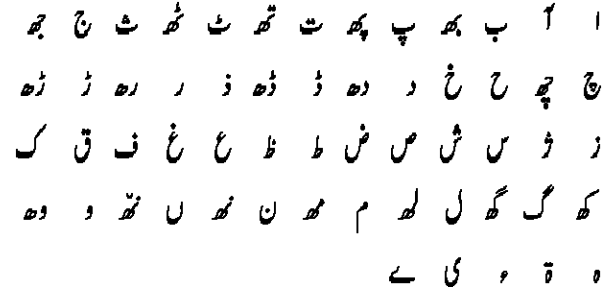 ا آ ب بھ پ پھ ت تھ ٹ ٹھ ث ج جھ
چ چھ ح خ د دھ ڈ ڈھ ذ ر رھ ڑ ڑھ
ز ژ س ش ص ض ط ظ ع غ ف ق ک
کھ گ گھ ل لھ م مھ ن نھ ں و وھ
ہ ۃ ء ی ے